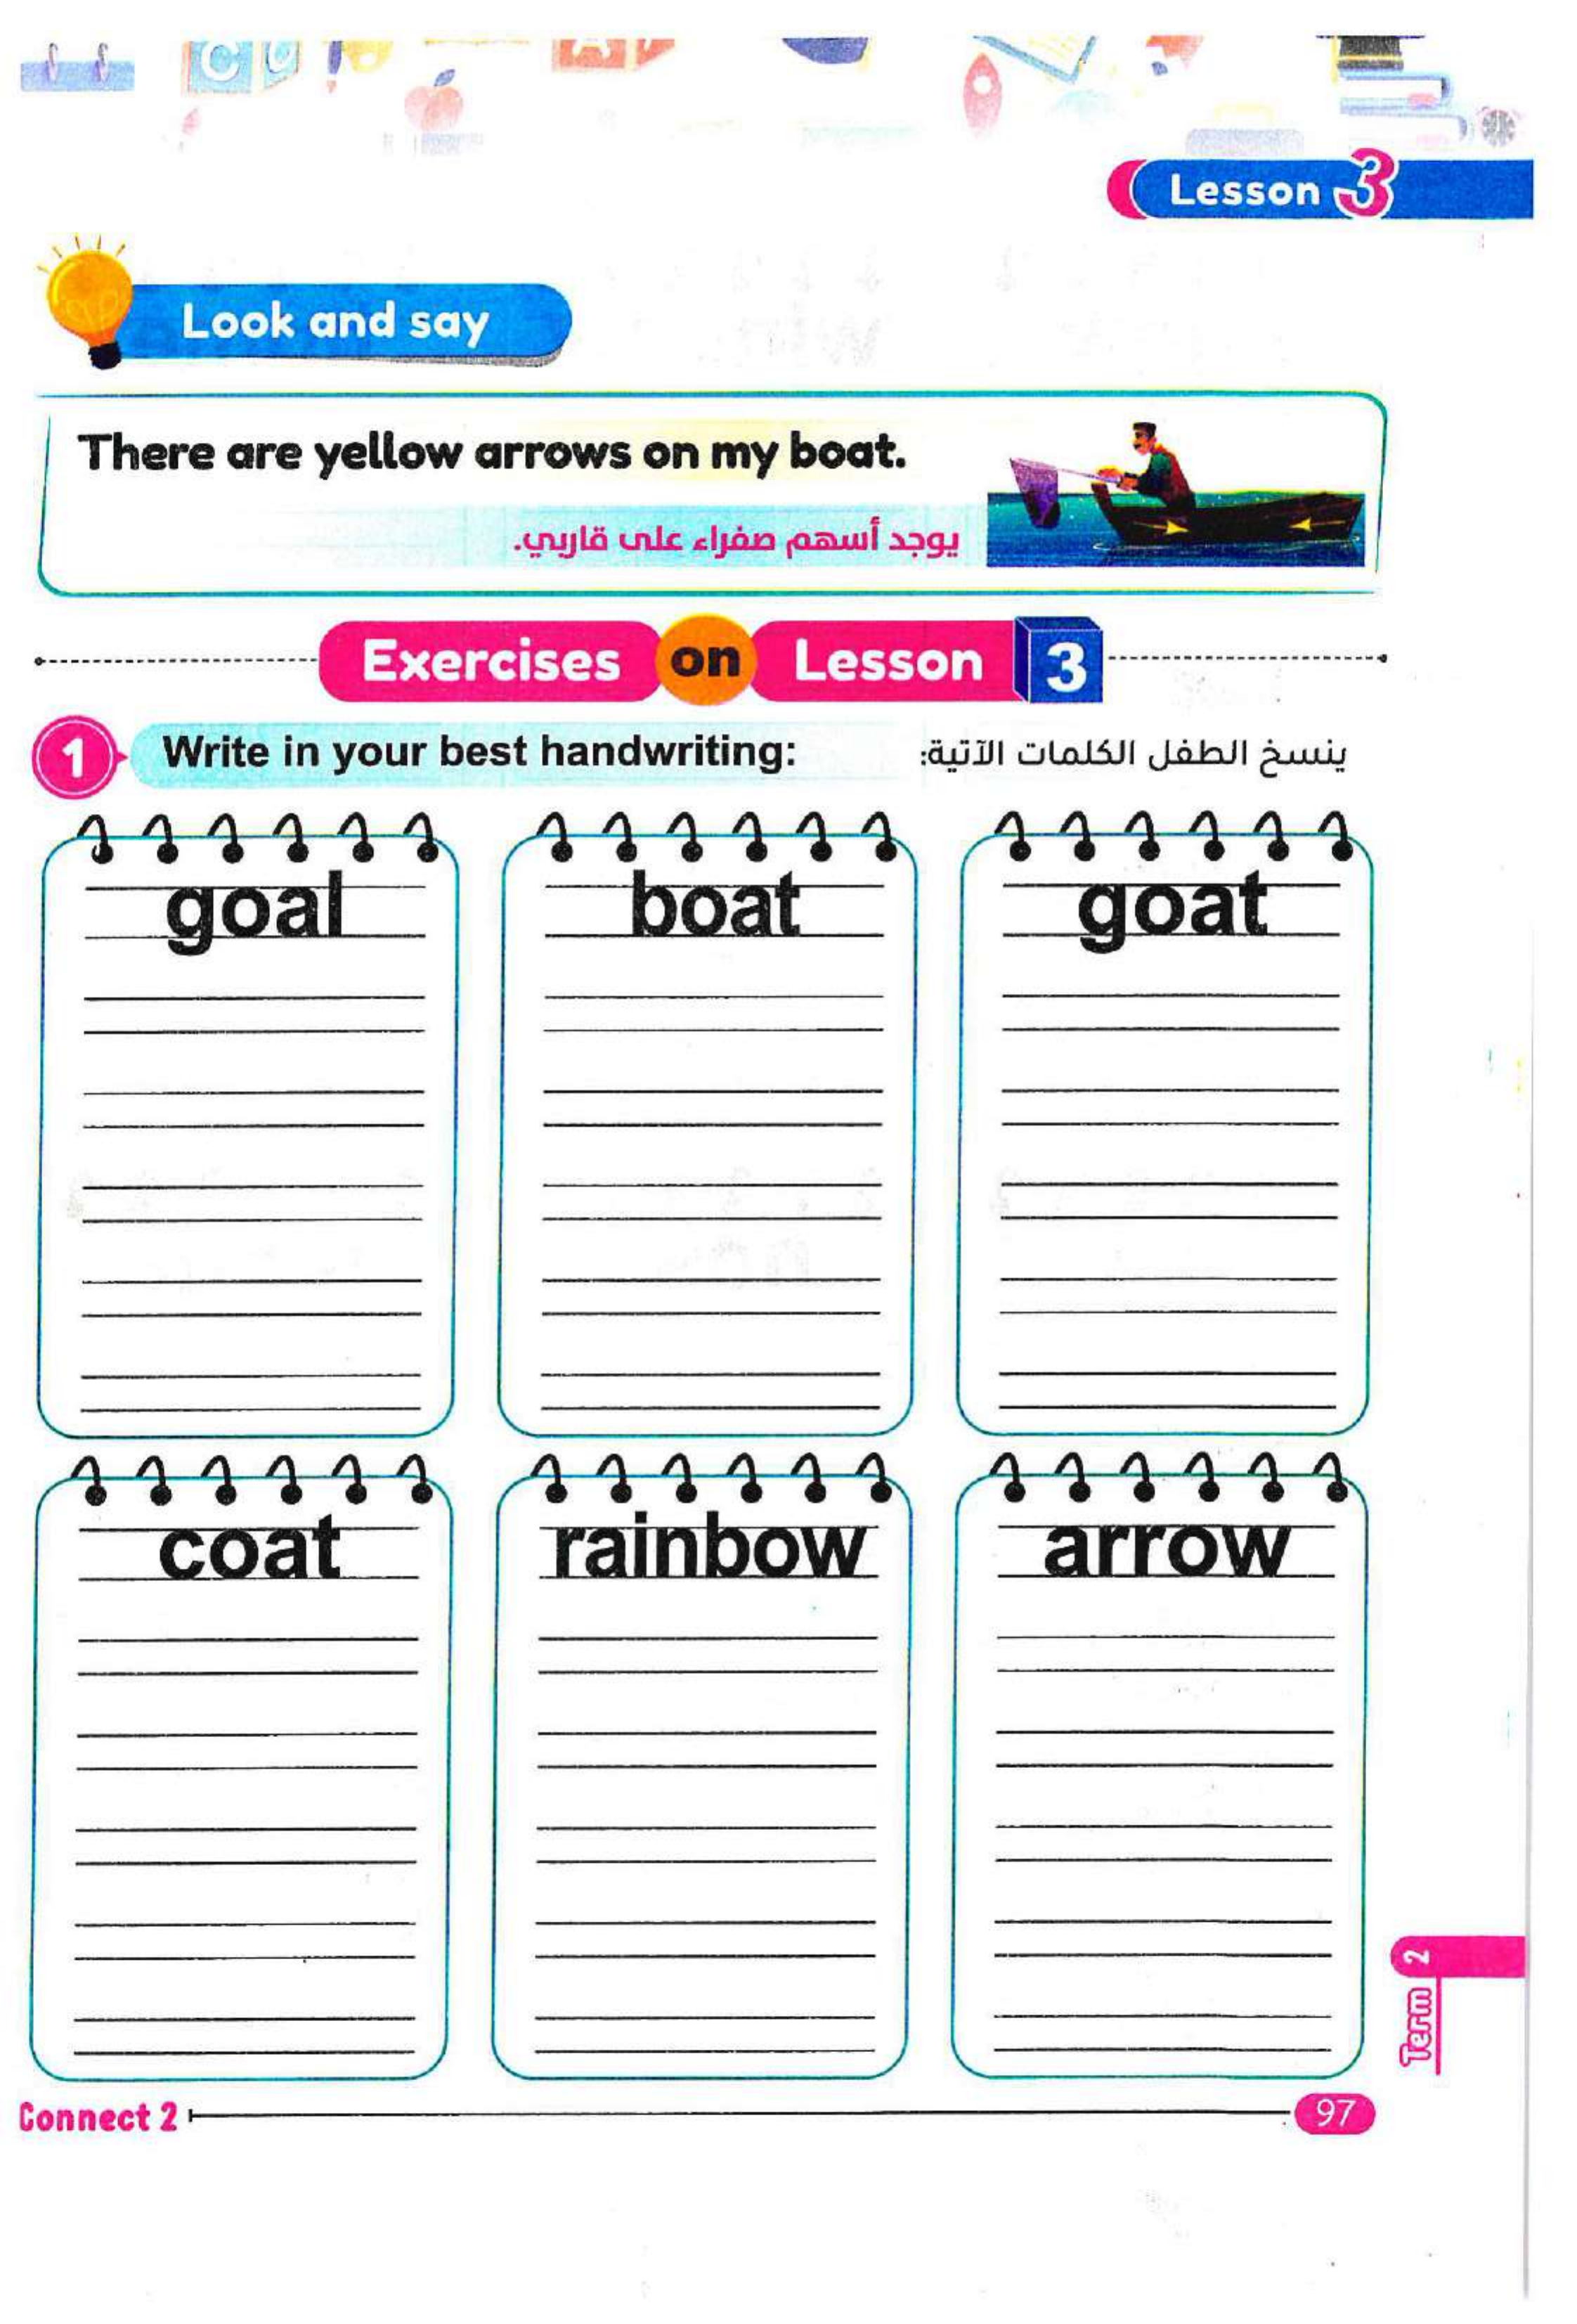 Lesson 3
Look and say
There are yellow arrows on my boat.
يوجد أسهم صفراء على قاربي.
Exercises on Lesson 3
1 Write in your best handwriting: ينسخ الطفل الكلمات الآتية:
goal boat goat
coat rainbow arrow
Term 2
Connect 2 97